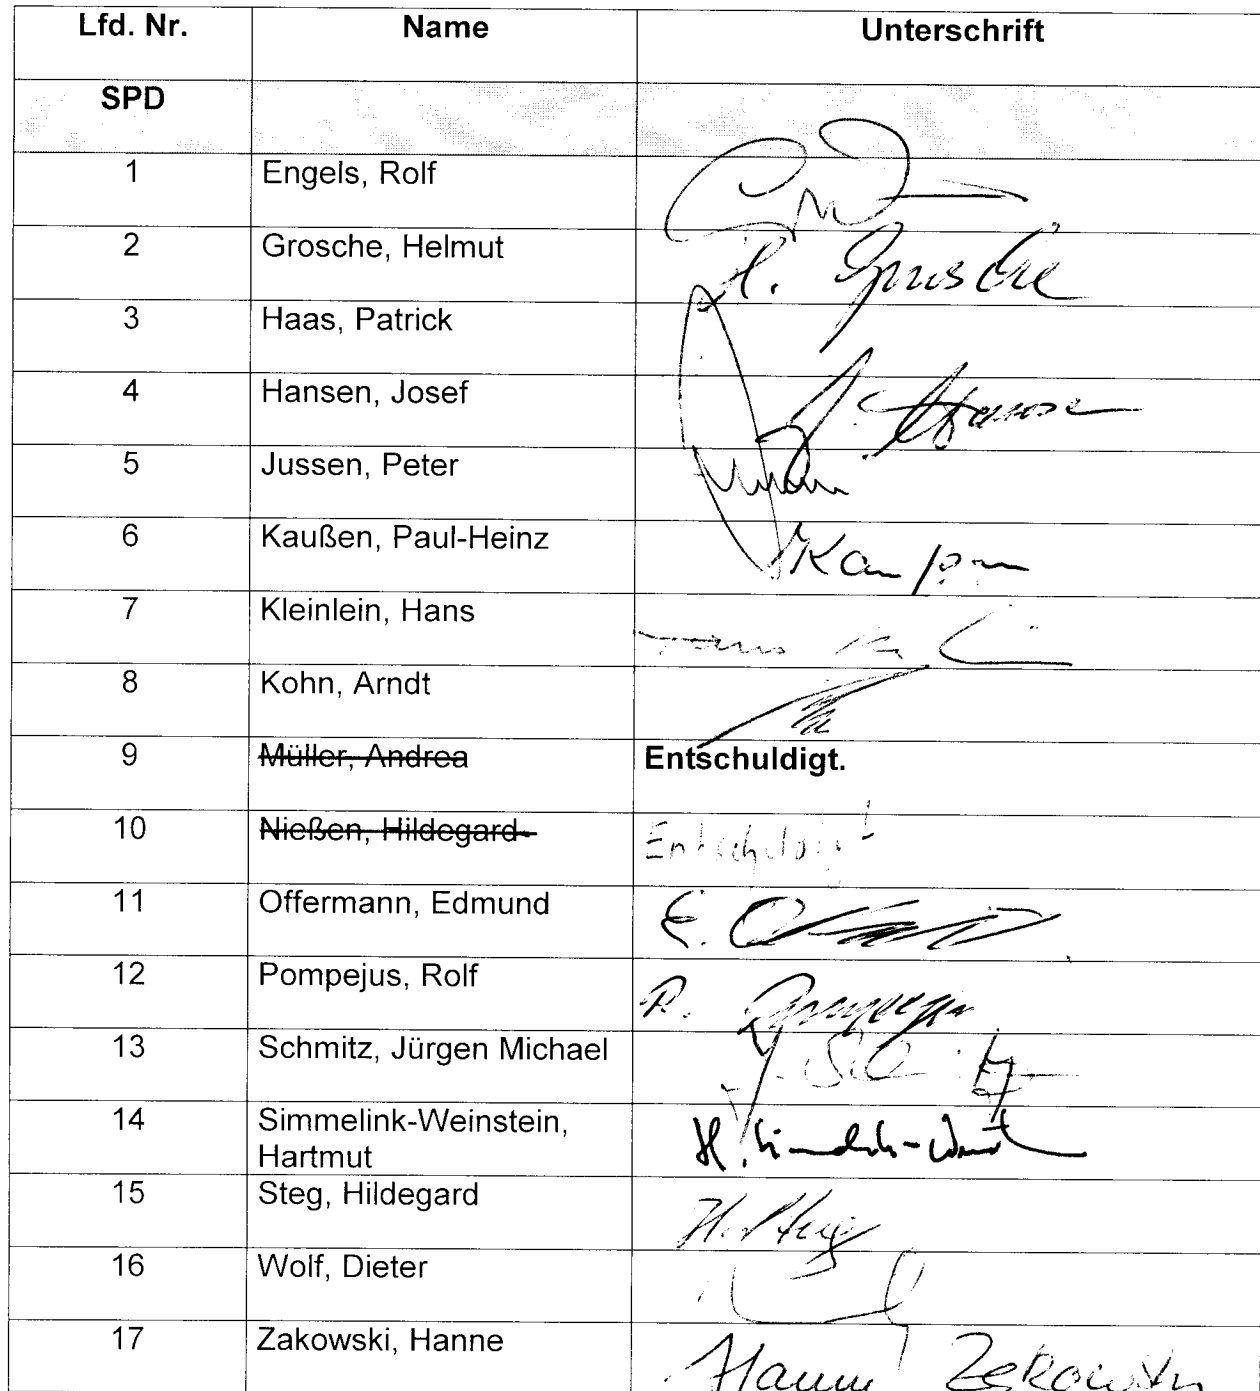 Lfd. Nr. Name Unterschrift
SPD
1 Engels, Rolf
2 Grosche, Helmut H. Grosche
3 Haas, Patrick
4 Hansen, Josef
5 Jussen, Peter
6 Kaußen, Paul-Heinz
7 Kleinlein, Hans Hans
8 Kohn, Arndt
9 Müller, Andrea Entschuldigt.
10 Nießen, Hildegard Entschuldigt
11 Offermann, Edmund E.
12 Pompejus, Rolf R.
13 Schmitz, Jürgen Michael
14 Simmelink-Weinstein,
Hartmut H.
15 Steg, Hildegard H. Steg
16 Wolf, Dieter
17 Zakowski, Hanne Hanne Zakowski